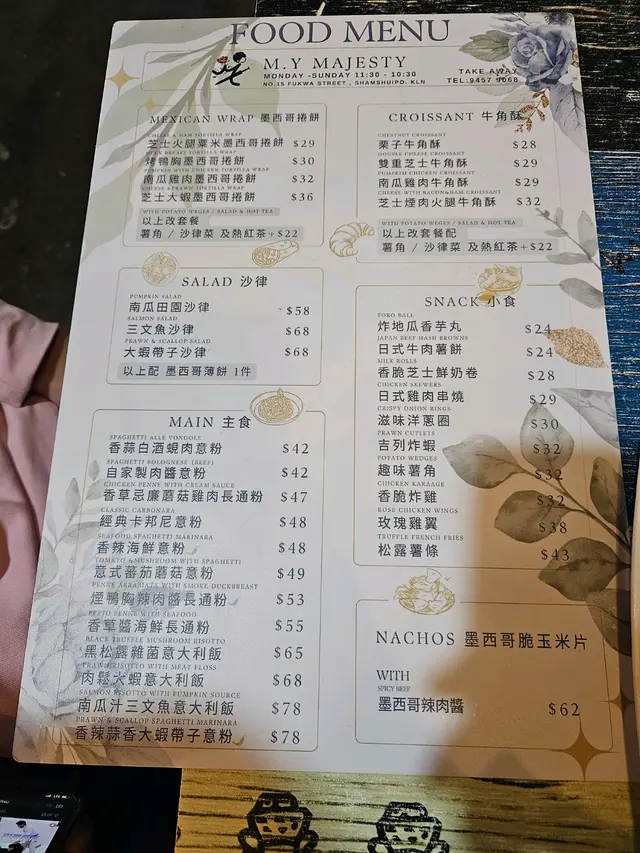 FOOD MENU
M.Y MAJESTY
MONDAY -SUNDAY 11:30 - 10:30
NO.15 FUKWA STREET , SHAMSHUIPO. KLN
TAKE AWAY
TEL:9457 9068
MEXICAN WRAP 墨西哥捲餅
CHEESE & HAM TORTILLA WRAP
芝士火腿粟米墨西哥捲餅 $29
DUCK BREAST TORTILLA WRAP
烤鴨胸墨西哥捲餅 $30
PUMPKIN WITH CHICKEN TORTILLA WRAP
南瓜雞肉墨西哥捲餅 $32
CHEESE & PRAWN TORTILLA WRAP
芝士大蝦墨西哥捲餅 $36
WITH POTATO WEGES / SALAD & HOT TEA
以上改套餐
薯角 / 沙律菜 及熱紅茶+$22
CROISSANT 牛角酥
CHESTNUT CROISSANT
栗子牛角酥 $28
DOUBLE CHEESE CROISSANT
雙重芝士牛角酥 $29
PUMPKIN CHICKEN CROISSANT
南瓜雞肉牛角酥 $29
CHEESE WITH BACON&HAM CROISSANT
芝士煙肉火腿牛角酥 $32
WITH POTATO WEGES / SALAD & HOT TEA
以上改套餐配
薯角 / 沙律菜 及熱紅茶+$22
SALAD 沙律
PUMPKIN SALAD
南瓜田園沙律 $58
SALMON SALAD
三文魚沙律 $68
PRAWN & SCALLOP SALAD
大蝦帶子沙律 $68
以上配 墨西哥薄餅 1件
SNACK 小食
TORO BALL
炸地瓜香芋丸 $24
JAPAN BEEF HASH BROWNS
日式牛肉薯餅 $24
MILK ROLLS
香脆芝士鮮奶卷 $28
CHICKEN SKEWERS
日式雞肉串燒 $29
CRISPY ONION RINGS
滋味洋蔥圈 $30
PRAWN CUTLETS
吉列炸蝦 $32
POTATO WEDGES
趣味薯角 $32
CHICKEN KARAAGE
香脆炸雞 $32
ROSE CHICKEN WINGS
玫瑰雞翼 $38
TRUFFLE FRENCH FRIES
松露薯條 $43
MAIN 主食
SPAGHETTI ALLE VONGOLE
香蒜白酒蜆肉意粉 $42
SPAGHETTI BOLOGNESE (BEEF)
自家製肉醬意粉 $42
CHICKEN PENNE WITH CREAM SAUCE
香草忌廉蘑菇雞肉長通粉 $47
CLASSIC CARBONARA
經典卡邦尼意粉 $48
SEAFOOD SPAGHETTI MARINARA
香辣海鮮意粉 $48
TOMATO & MUSHROOM WITH SPAGHETTI
意式蕃茄蘑菇意粉 $49
PENNE ARRABIATA WITH SMOKE DUCKBREAST
煙鴨胸辣肉醬長通粉 $53
PESTO PENNE WITH SEAFOOD
香草醬海鮮長通粉 $55
BLACK TRUFFLE MUSHROOM RISOTTO
黑松露雜菌意大利飯 $65
PRAWN RISOTTO WITH MEAT FLOSS
肉鬆大蝦意大利飯 $68
SALMON RISOTTO WITH PUMPKIN SOURCE
南瓜汁三文魚意大利飯 $78
PRAWN & SCALLOP SPAGHETTI MARINARA
香辣蒜香大蝦帶子意粉 $78
NACHOS 墨西哥脆玉米片
WITH
SPICY BEEF
墨西哥辣肉醬 $62